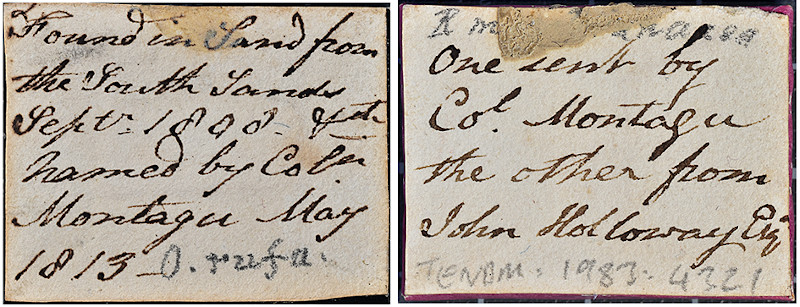 Found in Sand from
the South Sands
Septr. 1808 - &
named by Coln.
Montagu May
1813 - O. rufa.
One sent by
Col. Montagu
the other from
John Holloway Esqr
TENBM. 1983. 4321